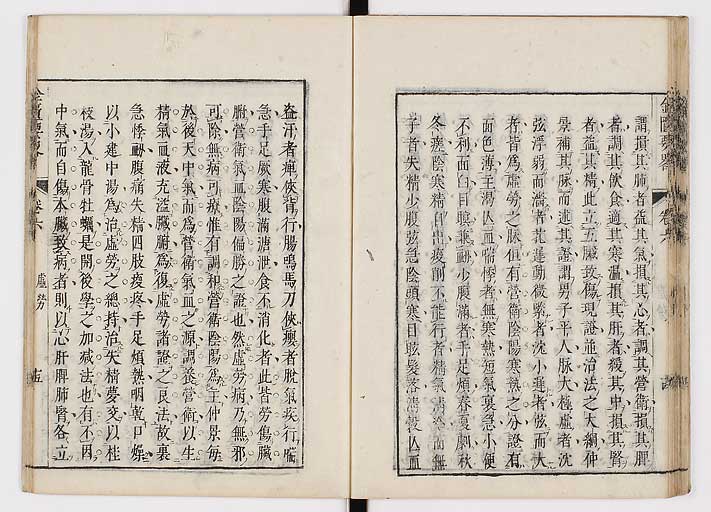 謂損其肺者益其氣損其心者調其營衛損其脾
者調其飲食適其寒溫損其肝者緩其中損其腎
者益其精此立五臟致傷現證並治法之大綱仲
景補其脉而連其證謂男子平人脉大極虛者沈
弦浮弱而濇者芤遲動微緊者沈小遲者弦而大
者皆為虛勞之脉但有營衛陰陽寒熱之分證有
面色薄主渴亡血喘悸者無寒熱短氣裏急小便
不利面白目瞑兼衂少腹滿者手足煩春夏劇秋
冬瘥陰寒精自出痠削不能行者精氣清冷而無
子者失精少腹弦急陰頭寒目眩髮落清穀亡血
盜汗者痺俠背行腸鳴馬刀俠癭者脫氣疾行喘
急手足厥寒腹滿溏泄食不消化者此皆勞傷臟
腑營衛氣血陰陽偏勝之證也然虛勞病乃無邪
可除無病可療惟有調和營衛陰陽為主仲景每
於後天中氣而為營衛氣血之源調養營衛以生
精氣血液充溢臟腑為復虛勞諸證之良法故裏
急悸衂腹痛失精四肢痠疼手足煩熱咽乾口燥
以小建中湯為治虛勞之總持治失精夢交以桂
枝湯入龍骨牡蠣是開後學之加減法也有不因
中氣而自傷本臟致病者則以心肝脾肺腎各立
卷六
虛勞